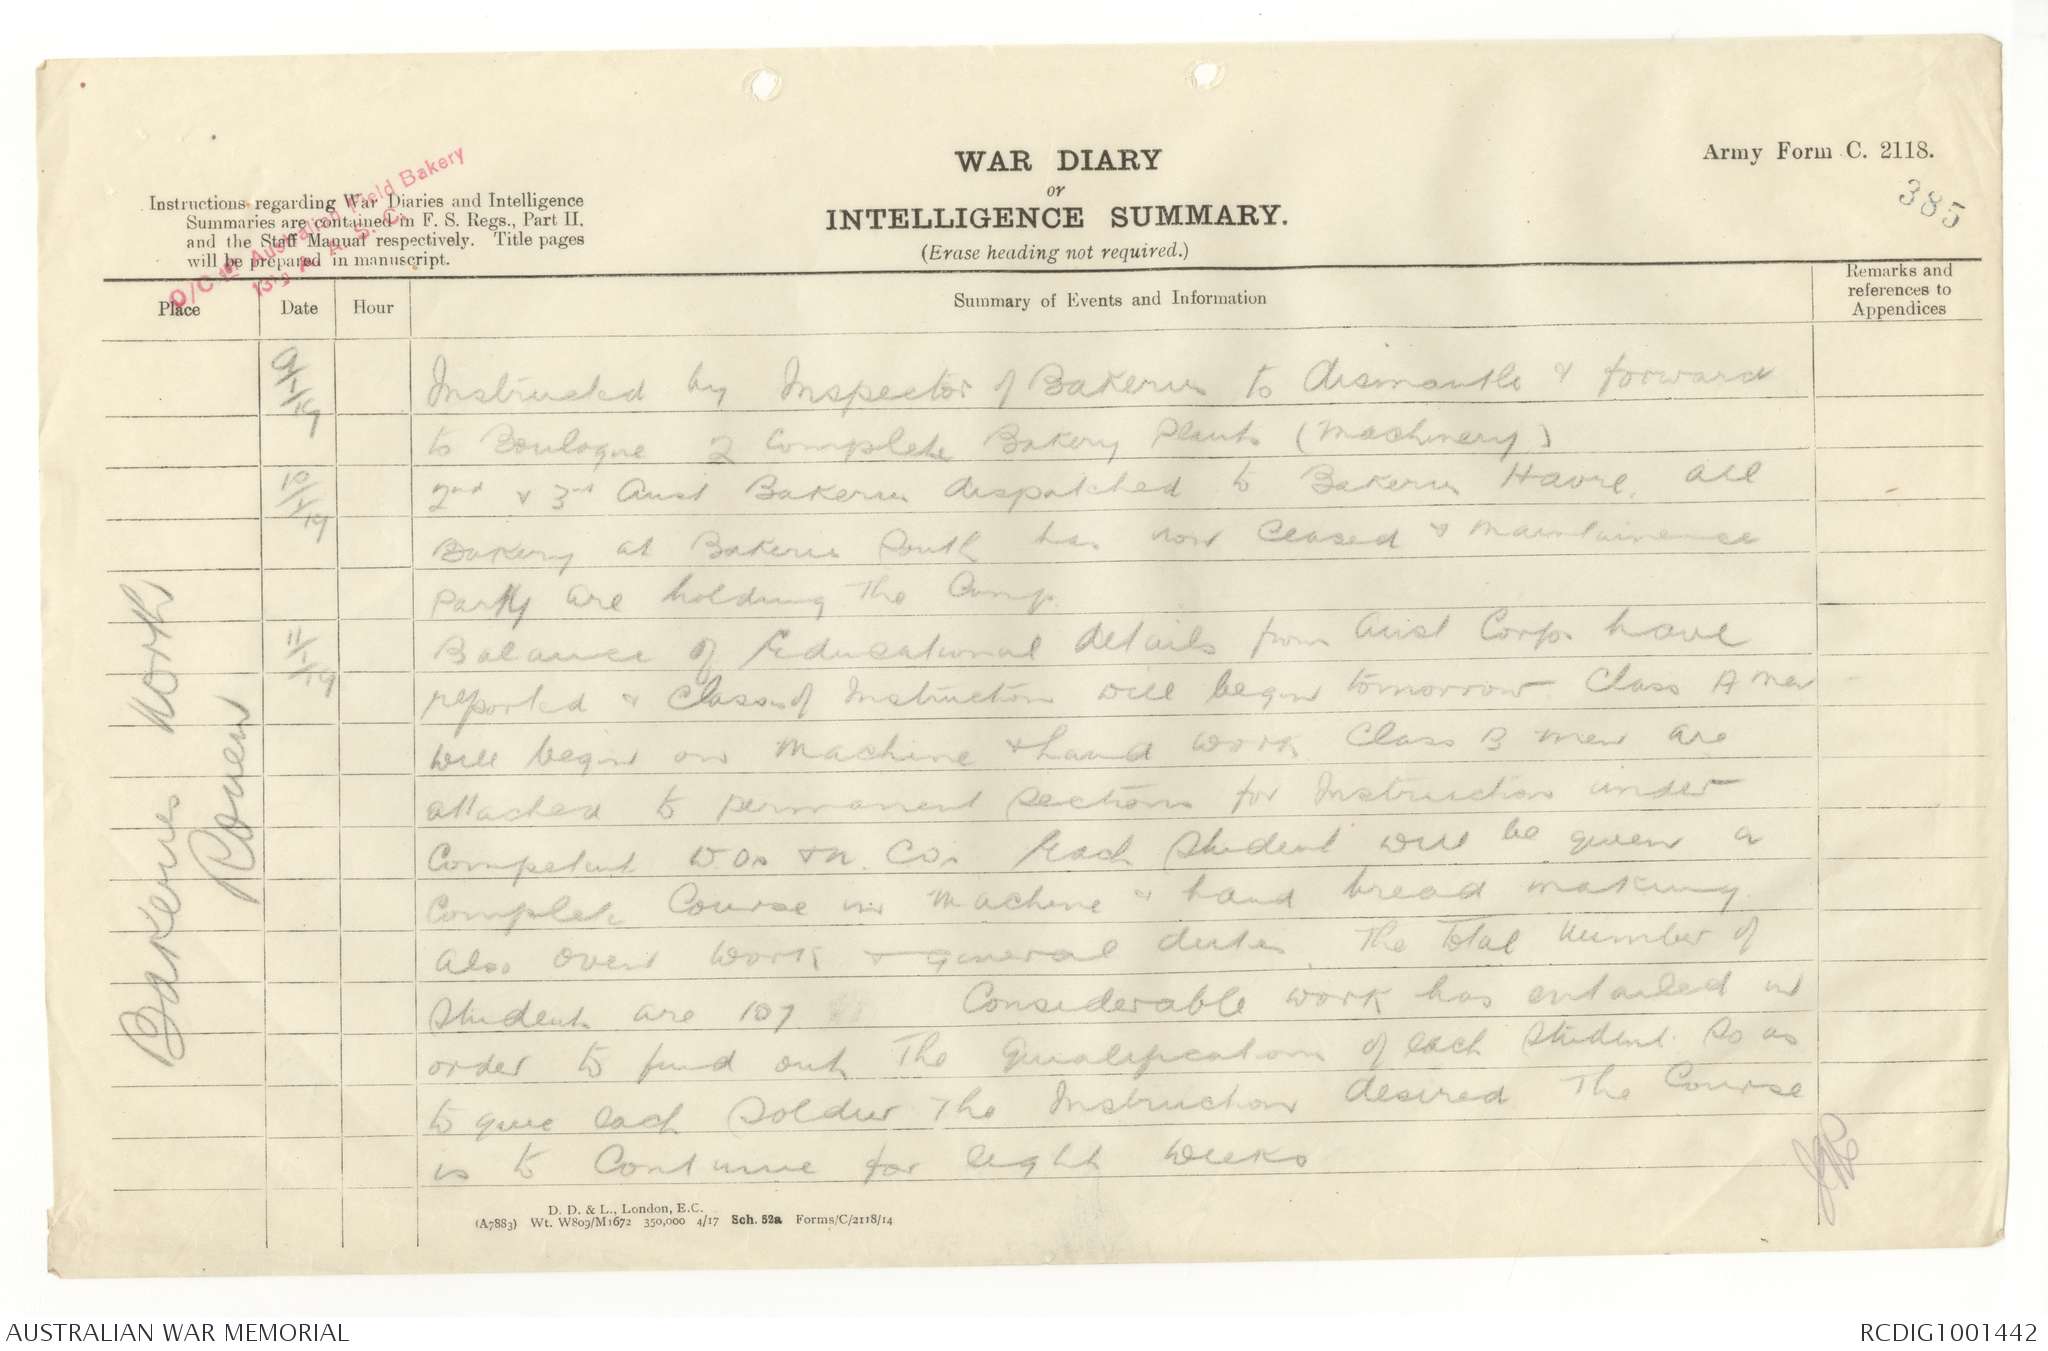 WAR DIARY
or
INTELLIGENCE SUMMARY.
(Erase heading not required.)
Army Form C. 2118.
385
Instructions regarding War Diaries and Intelligence
Summaries are contained in F. S. Regs., Part II.
and the Staff Manual respectively. Title pages
will be prepared in manuscript.
O/C 1st Australian Field Bakery
A. A. S. C.
Place
Date
Hour
Summary of Events and Information
Remarks and
references to
Appendices
Bakeries North
Rouen
9/1/19
Instructed by Inspector of Bakeries to dismantle & forward
to Boulogne 2 complete Bakery Plants (Machinery)
10/1/19
2nd & 3rd Aust Bakeries dispatched to Bakeries Havre. All
Bakery at Bakeries South has now ceased & maintainence
party are holding the Camp.
11/1/19
Balance of Educational details from Aust Corps have
reported & Classes of Instruction will begin tomorrow. Class A men
will begin on Machine & hand work Class B men are
attached to permanent sections for Instruction under
Competent W.Os & N.COs. Each Student will be given a
complete Course in Machine & hand bread making.
Also oven work & general duties. The total number of
Students are 107 Considerable work has entailed in
order to find out the Qualifications of each Student. So as
to give each soldier the Instruction desired The Course
is to Continue for eight weeks
D. D. & L., London, E.C.
(A7883) Wt. W809/M1672 350,000 4/17 Sch. 52a Forms/C/2118/14
AUSTRALIAN WAR MEMORIAL
RCDIG1001442